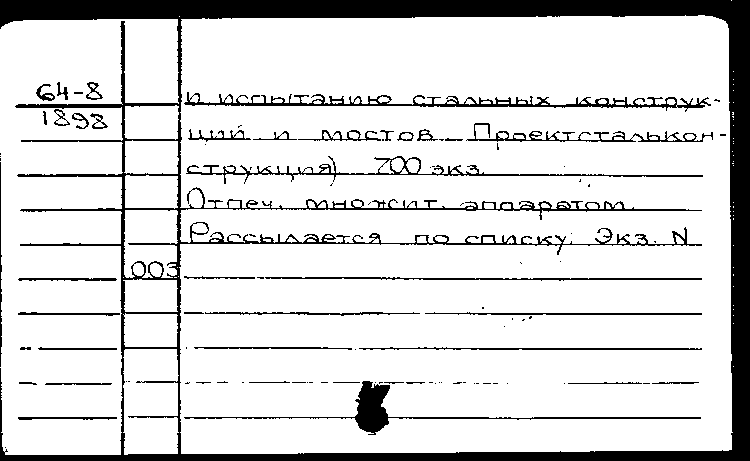 64-8
1898
и испытанию стальных конструк-
ций и мостов. Проектсталькон-
струкция) 700 экз.
Отпеч. множит. аппаратом.
Рассылается по списку. Экз. N
003